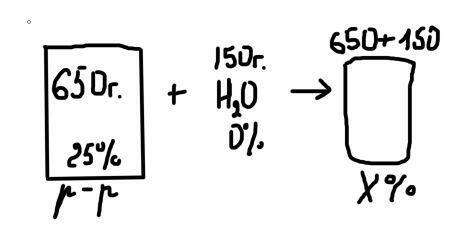 650г.
25%
р-р
+
150г.
H₂O
0%
→
650+150
X%